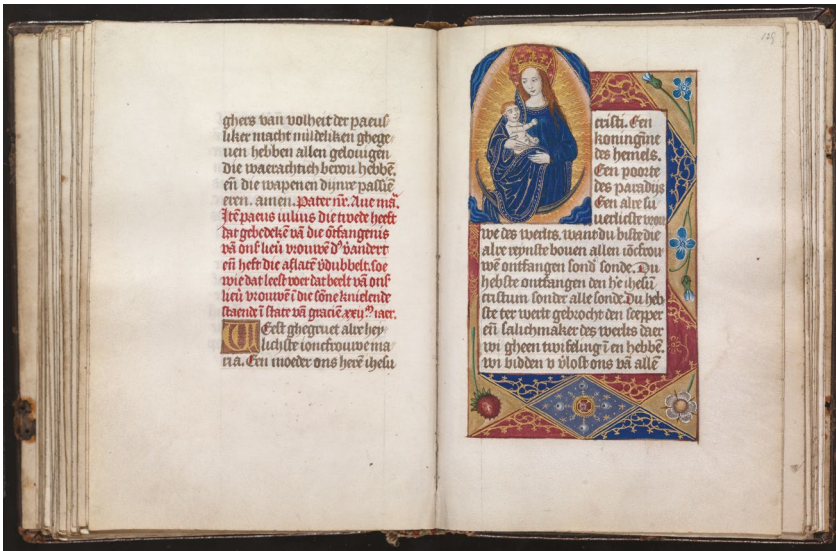 ghers van volheit der paeus
liker macht mildeliken ghege
uen hebben allen gelouigen
die waerachtich berou hebbē.
eñ die wapenen dijnre passiē
eren. amen. Pater nr̄. Aue ma͞.
Itē paeus iulius die twede heeft
dat gebedekē vā die ōtfangenis
vā onſ lieū vrouwē d' v̄andert
eñ heft die aflatē v̄dubbelt. soe
wie dat leest voer dat beelt vā onſ
lieū vrouwē ī die sōne knielende
staende ī state vā graciē. xxij.ᵐ iaer.
Weest ghegruet alre hey
lichste ioncfrouwe ma
ria. Een moeder ons herē ihesu
125
cristi. Een
koningīne
des hemels.
Een poorte
des paradijs
Een alre su
uerlicste vrou
we des werlts. want du biste die
alre reynste bouen allen iōcfrou
wē ontfangen sond' sonde. Du
hebste ontfangen den h'e ihesū
cristum sonder alle sonde. Du heb
ste ter werlt gebrocht den scepper
eñ salichmaker des werlts daer
wi gheen twifeling ī en hebbē.
wi bidden v v̄lost ons vā allē